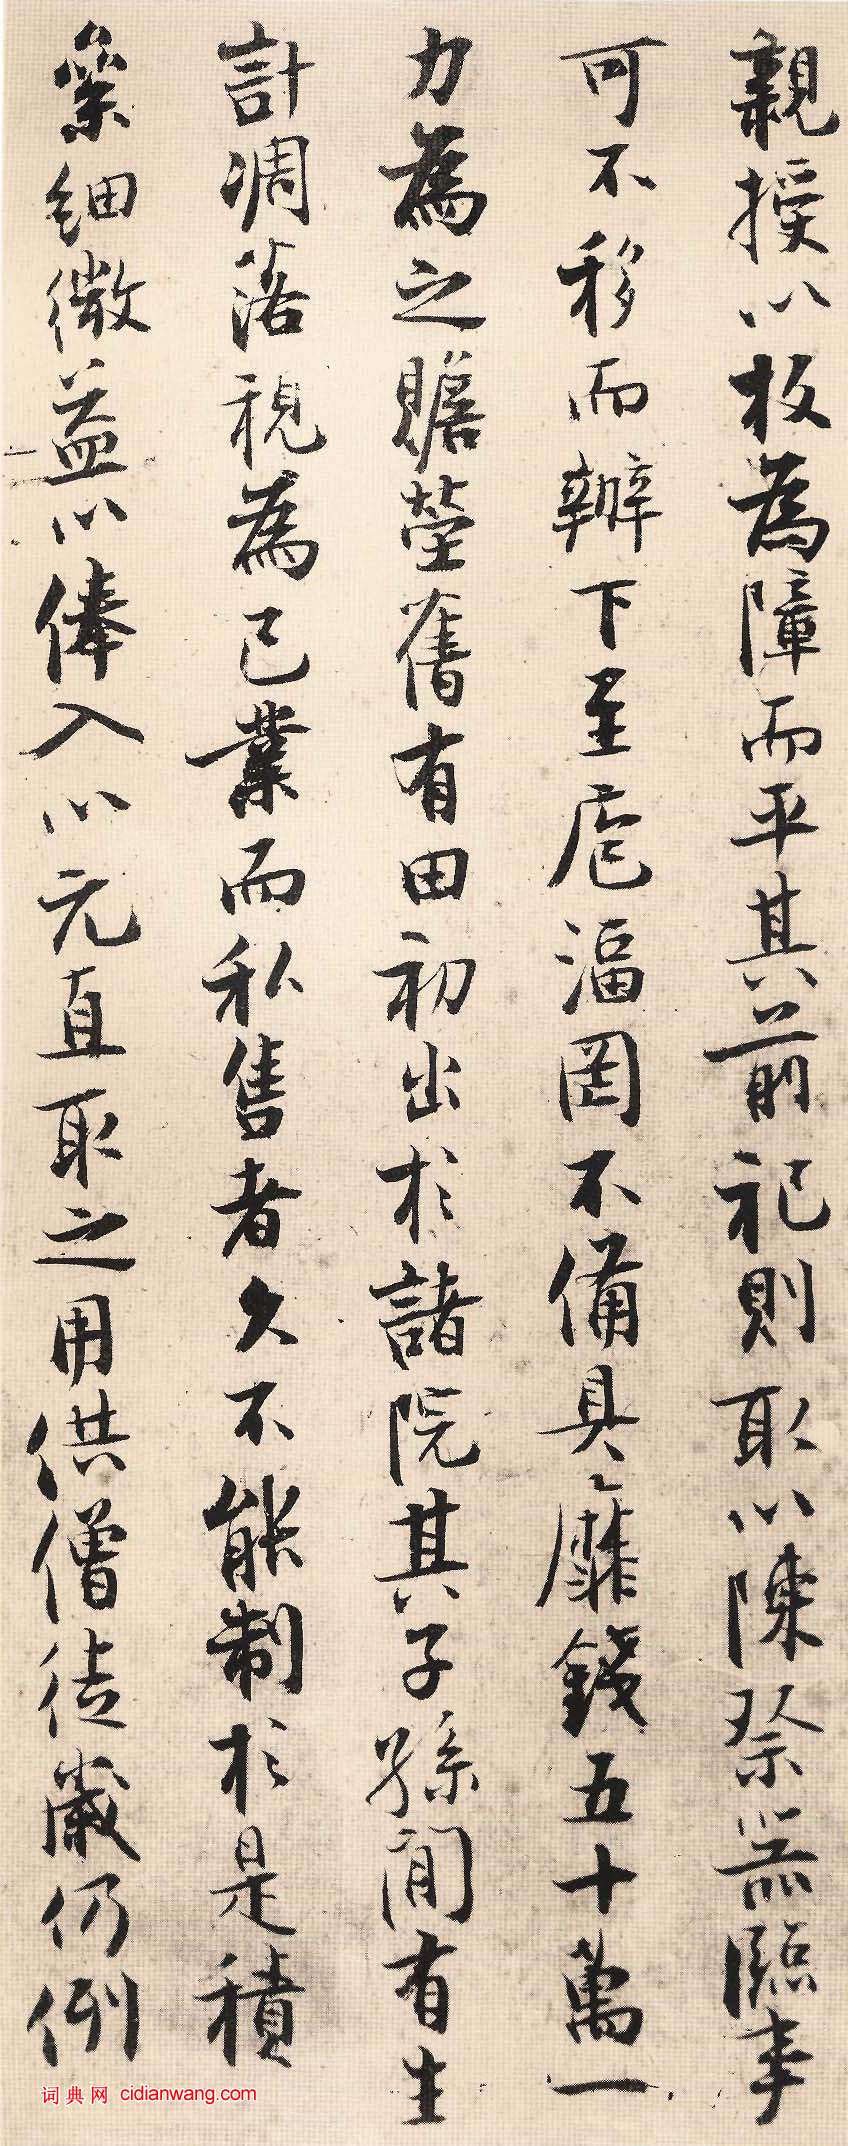 親授以板為障而平其前祀則取以陳祭器臨事
可不移而辦下至庖湢罔不備具靡錢五十萬一
力為之贍塋舊有田初出於諸院其子孫間有生
計凋落視為己業而私售者久不能制於是積
絫細微益以俸入以元直取之用供僧徒歲仍例
词典网 cidianwang.com